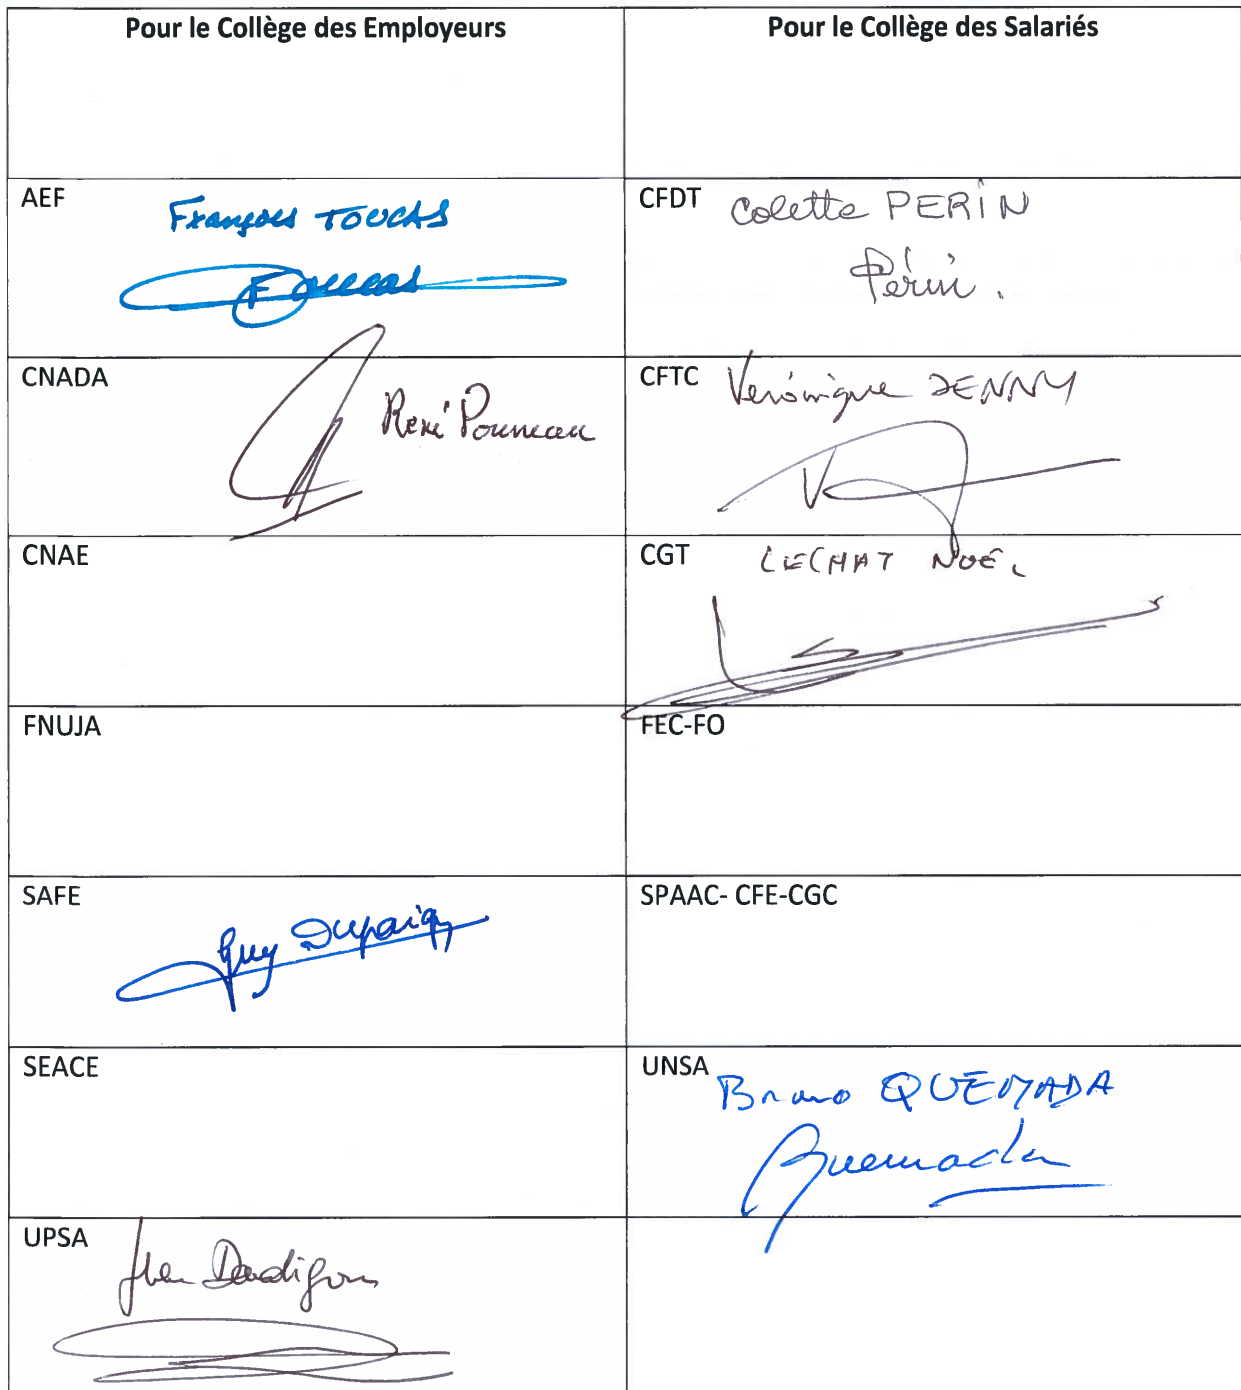 Pour le Collège des Employeurs
Pour le Collège des Salariés
AEF
François TOUCAS
Toucas
CFDT
Colette PERIN
Périn.
CNADA
René Poumeau
CFTC
Véronique JENNY
CNAE
CGT
LECHAT NOËL
FNUJA
FEC-FO
SAFE
Guy Dupaig
SPAAC- CFE-CGC
SEACE
UNSA
Bruno QUEMADA
Quemada
UPSA